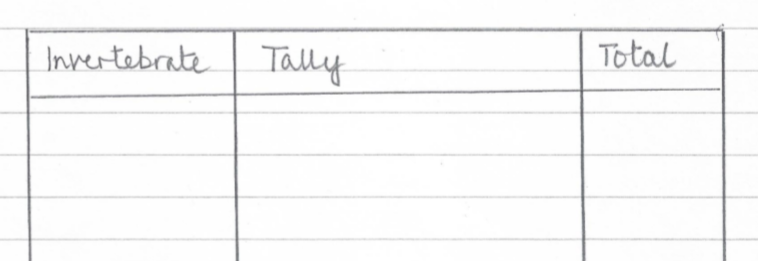 Invertebrate Tally Total